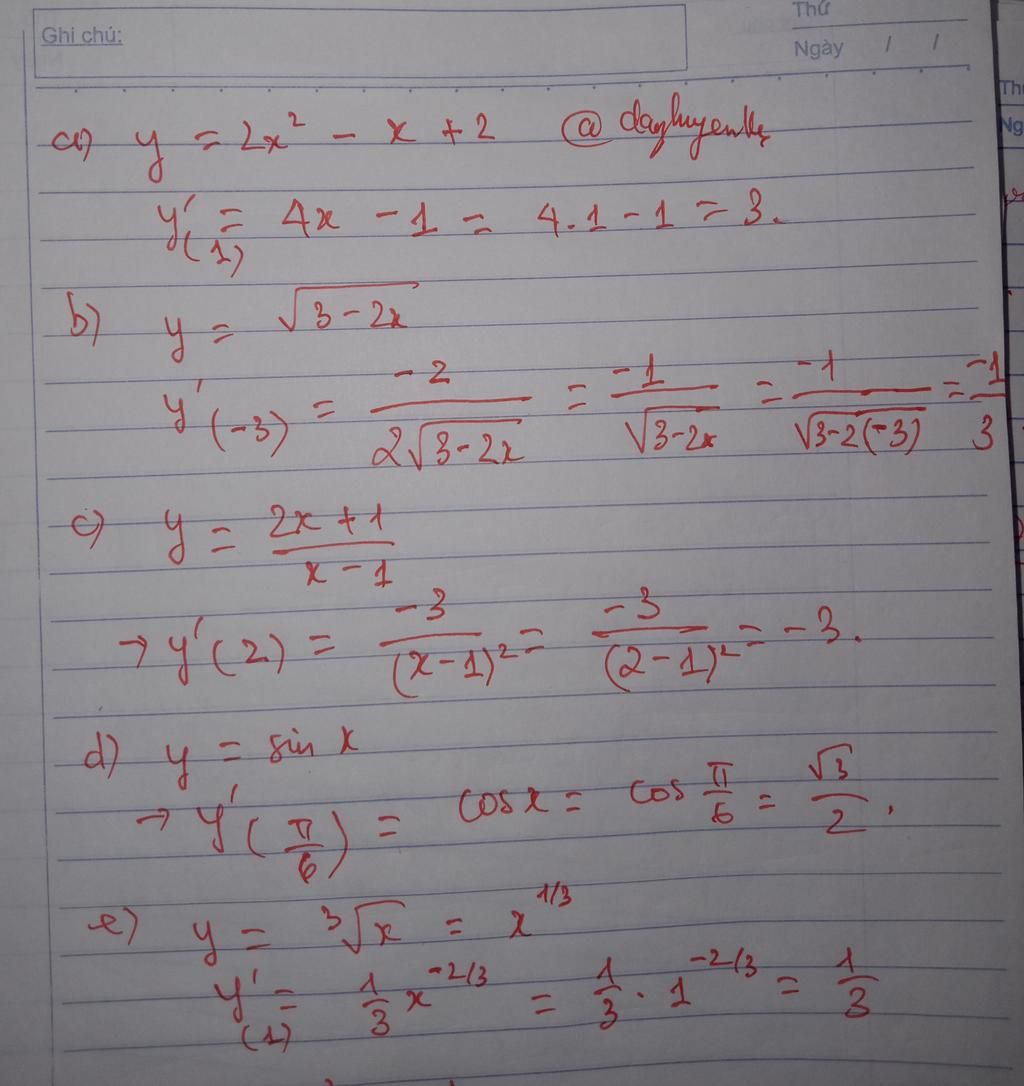 Ghi chú:
Thứ
Ngày / /
a) y = 2x² - x + 2
y'(1) = 4x - 1 = 4.1 - 1 = 3.
b) y = √(3-2x)
y'(-3) = -2/(2√(3-2x)) = -1/√(3-2x) = -1/√(3-2(-3)) = -1/3
c) y = (2x+1)/(x-1)
→ y'(2) = -3/(x-1)² = -3/(2-1)² = -3.
d) y = sin x
→ y'(π/6) = cos x = cos π/6 = √3/2.
e) y = ³√x = x^1/3
y'(1) = 1/3 x^-2/3 = 1/3 . 1^-2/3 = 1/3